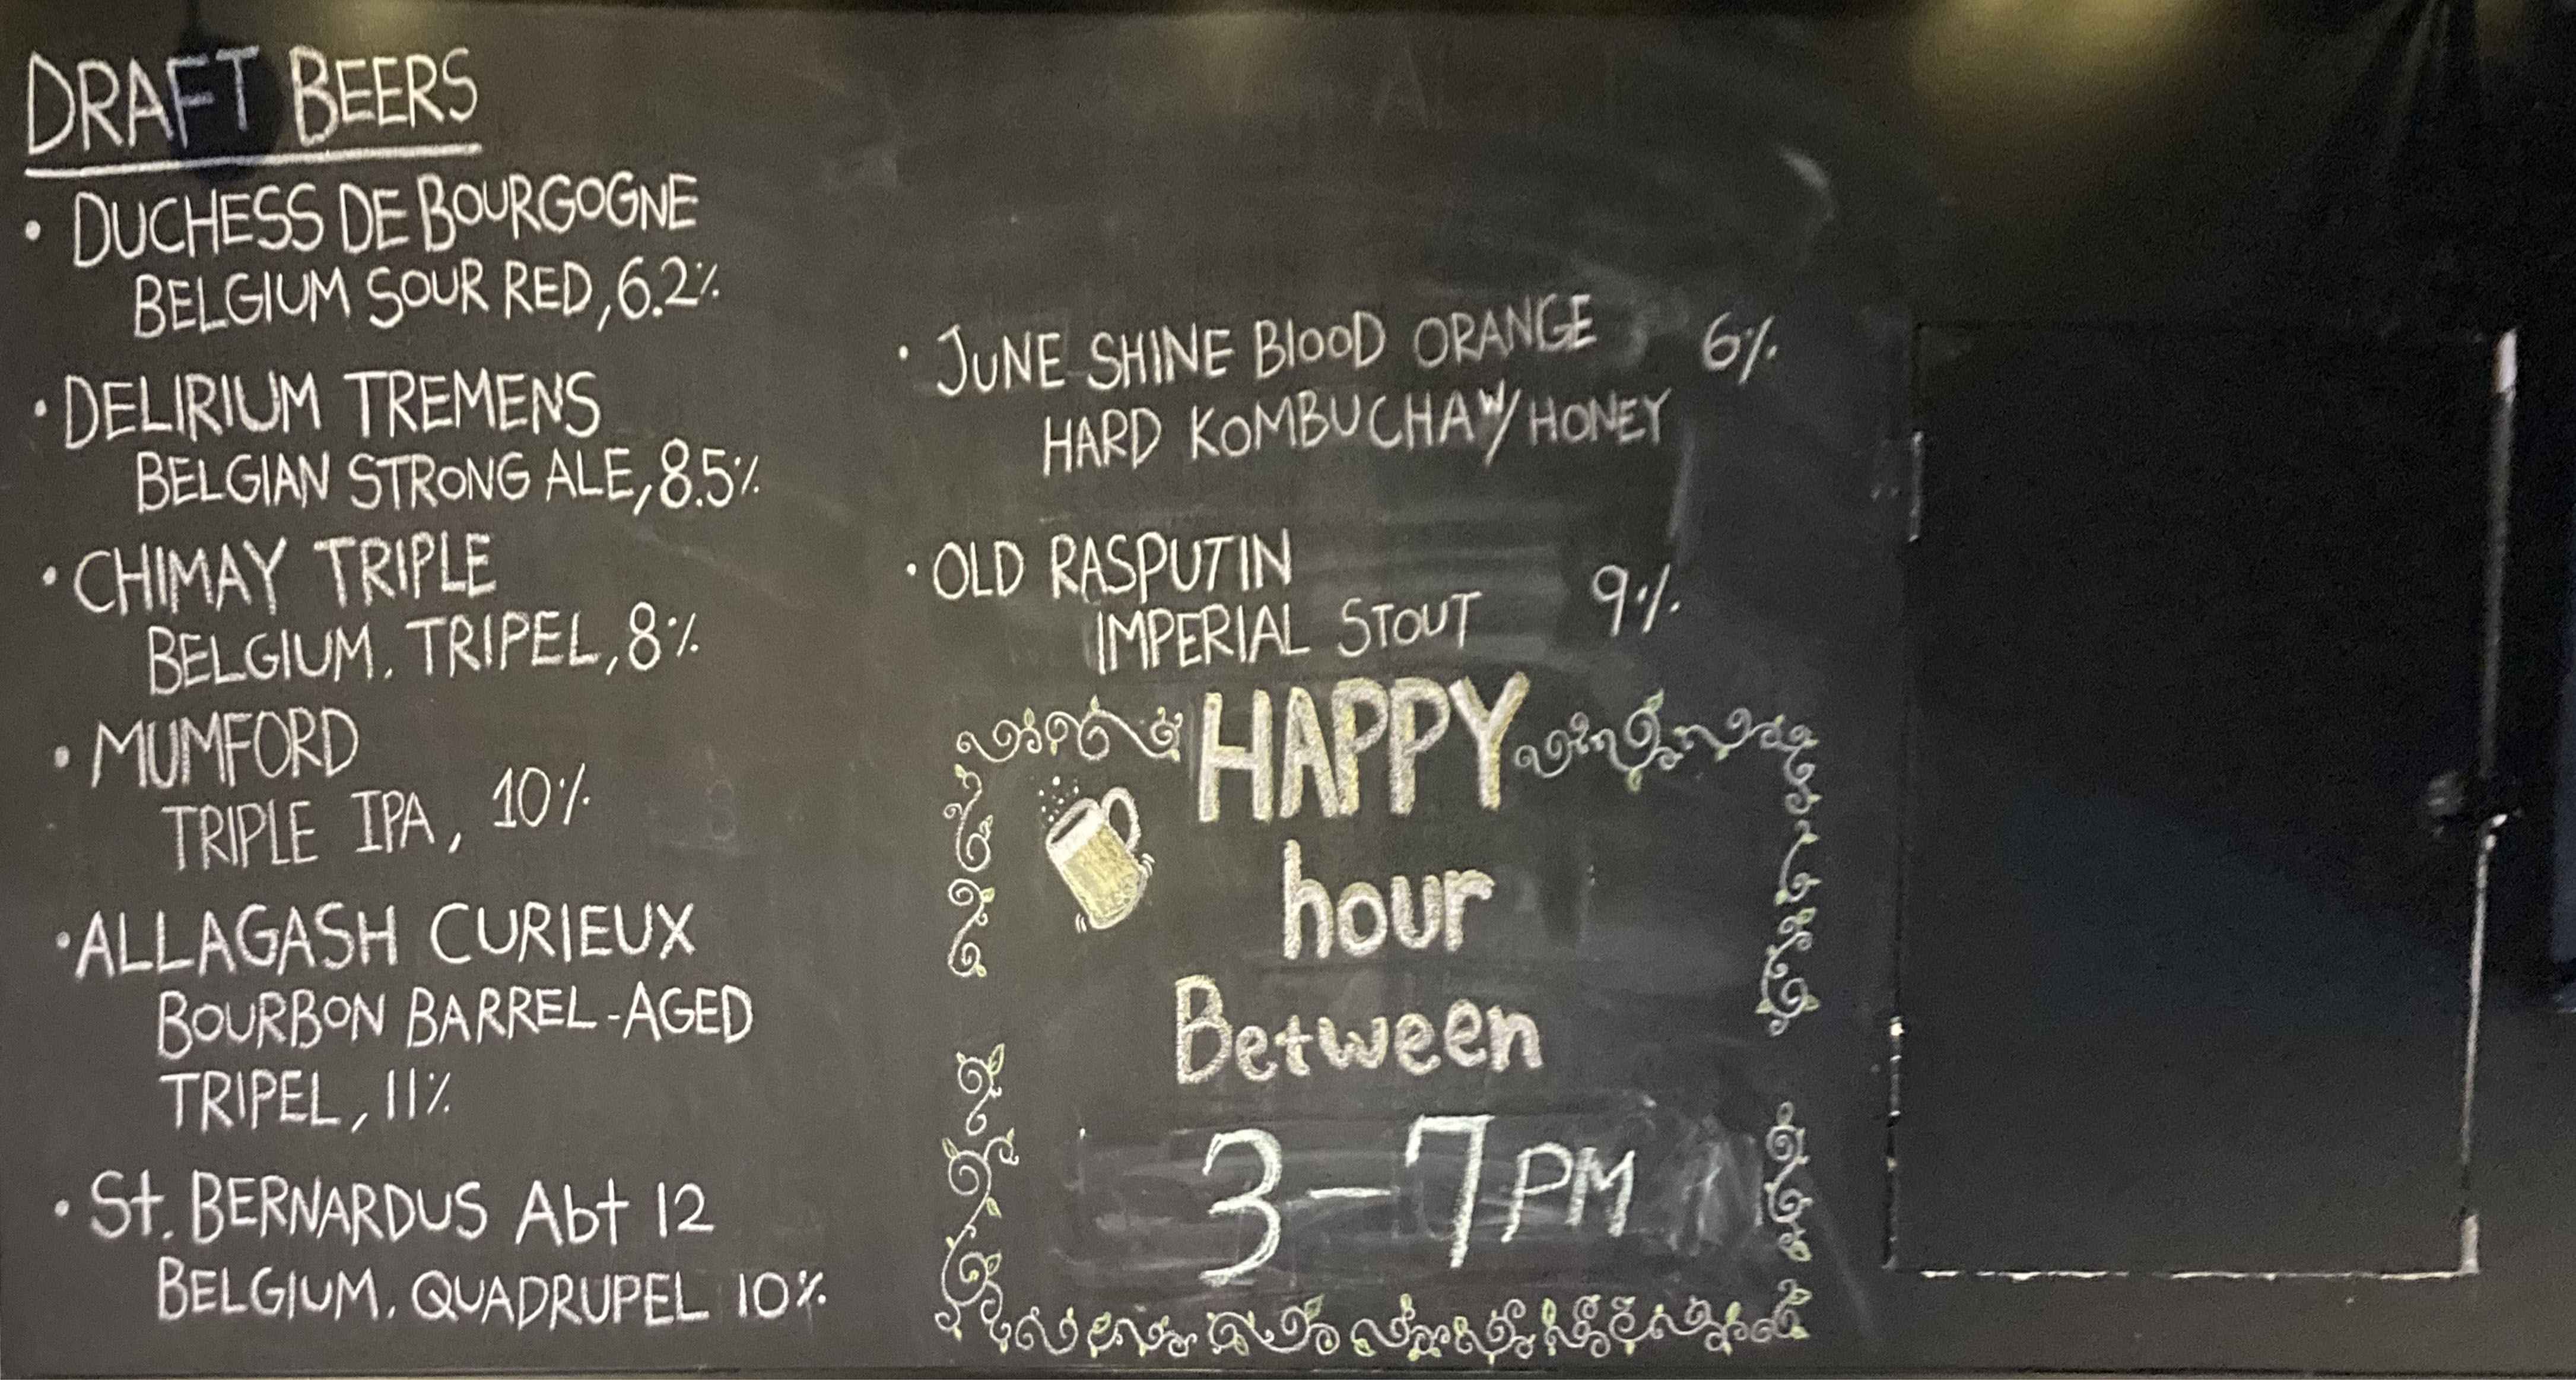 DRAFT BEERS
• DUCHESS DE BOURGOGNE
BELGIUM SOUR RED, 6.2%
• DELIRIUM TREMENS
BELGIAN STRONG ALE, 8.5%
• CHIMAY TRIPLE
BELGIUM. TRIPEL, 8%
• MUMFORD
TRIPLE IPA, 10%
• ALLAGASH CURIEUX
BOURBON BARREL-AGED
TRIPEL, 11%
• St. BERNARDUS Abt 12
BELGIUM. QUADRUPEL 10%
• JUNE SHINE BLOOD ORANGE 6%
HARD KOMBUCHA W/ HONEY
• OLD RASPUTIN
IMPERIAL STOUT 9%
HAPPY
hour
Between
3-7 PM